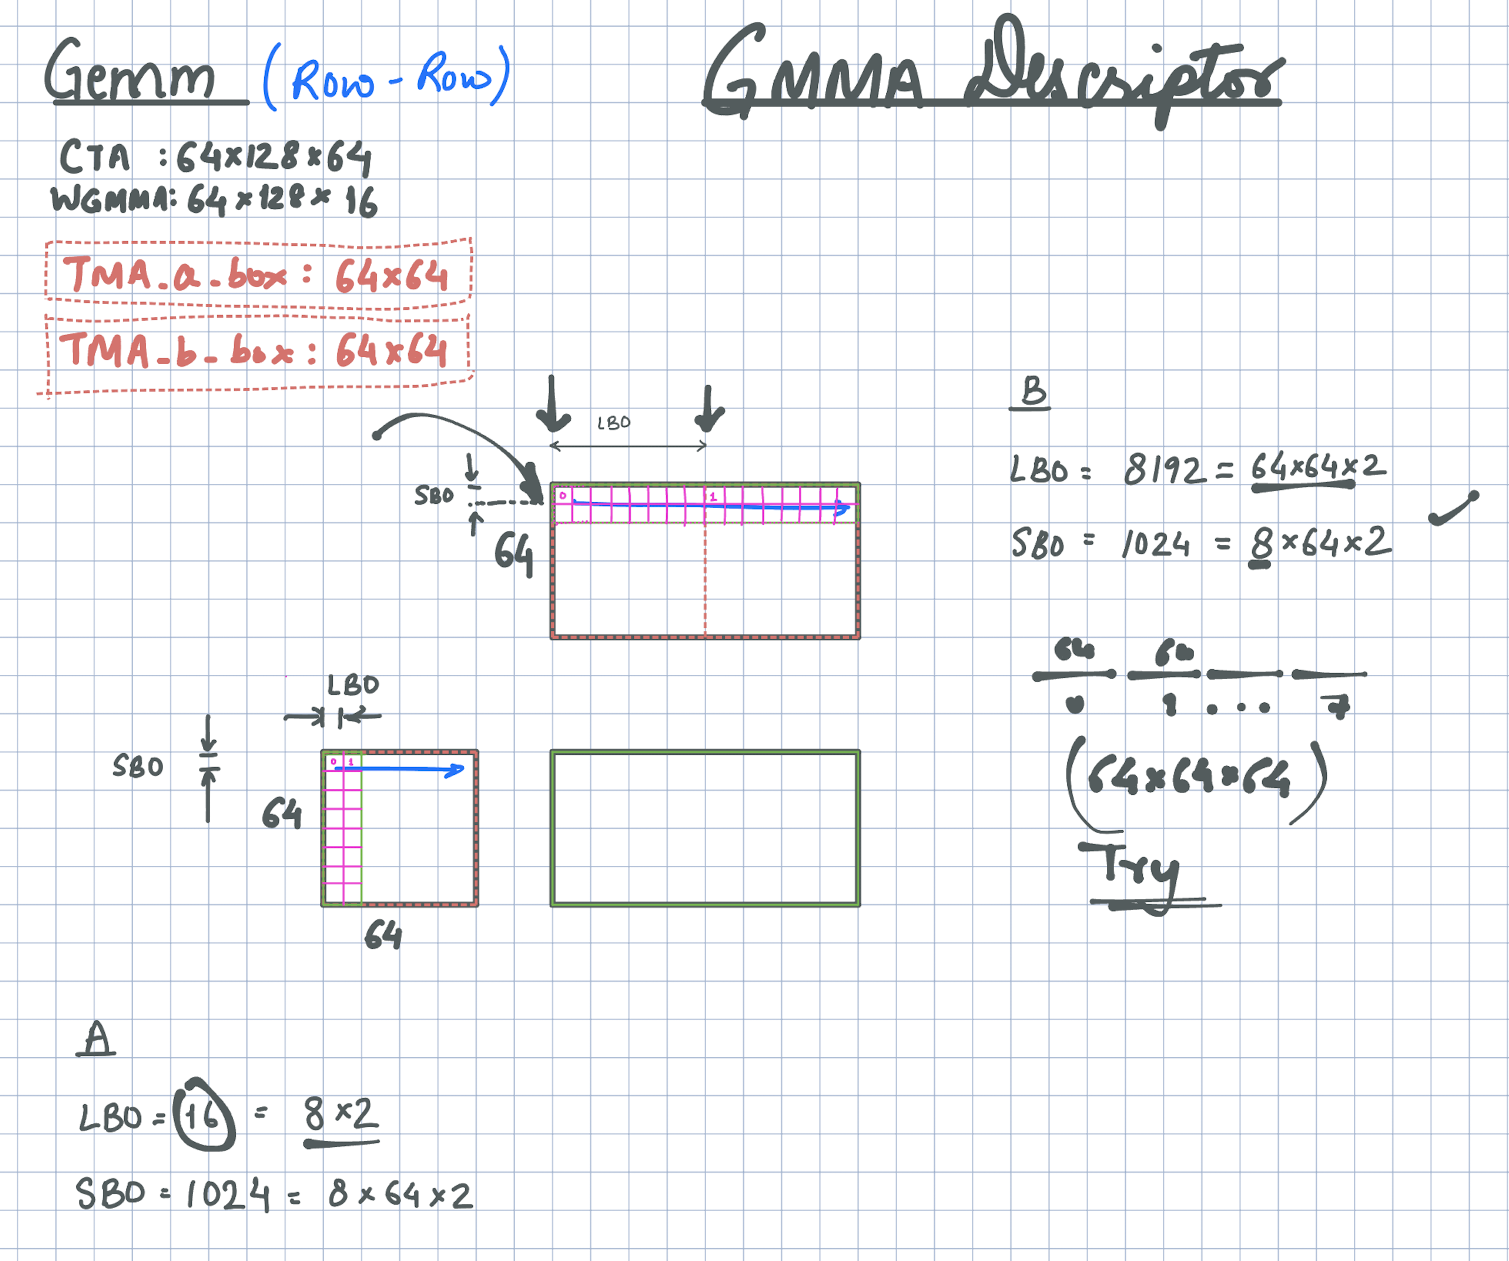 Gemm (Row-Row)
GMMA Descriptor
CTA : 64×128×64
WGMMA: 64×128×16
TMA_a_box : 64×64
TMA_b_box : 64×64
LBO
SBO
0 1
64
B
LBO = 8192 = 64×64×2
SBO = 1024 = 8×64×2
64 64
0 1 ... 7
(64×64×64)
Try
LBO
SBO
0 1
64
64
A
LBO = 16 = 8×2
SBO = 1024 = 8×64×2